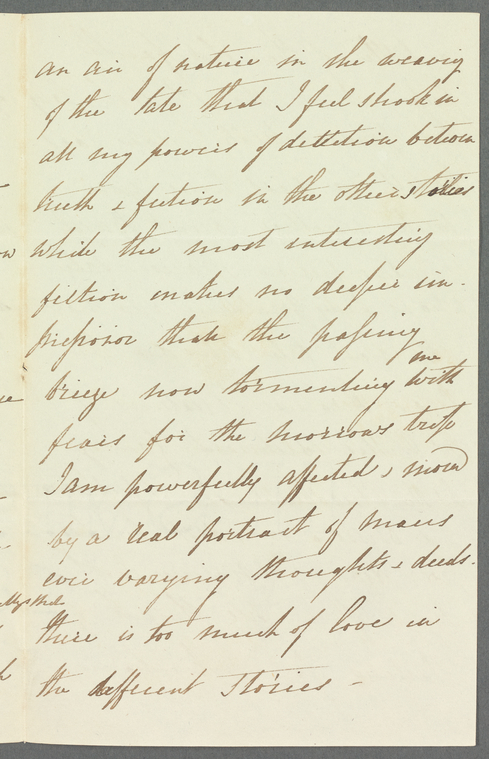 an air of nature in the weaving
of the tale that I feel shook in
all my powers of detetion between
truth & fiction in the other stories
while the most interesting
fiction makes no deeper im-
pression than the passing
breeze now tormenting me with
fears for the morrow's trip
I am powerfully affected & moved
by a real portrait of man's
ever varying thoughts & deeds.
there is too much of love in
the different stories -